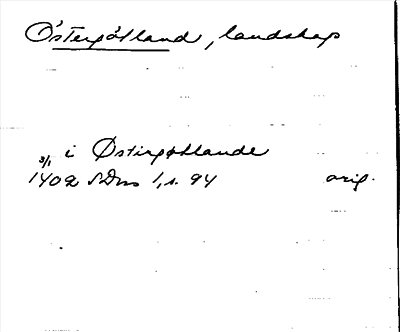 Östergötland, landskap
i Østirgøtlande
3/1
1402 SDns 1, s. 94 orig.